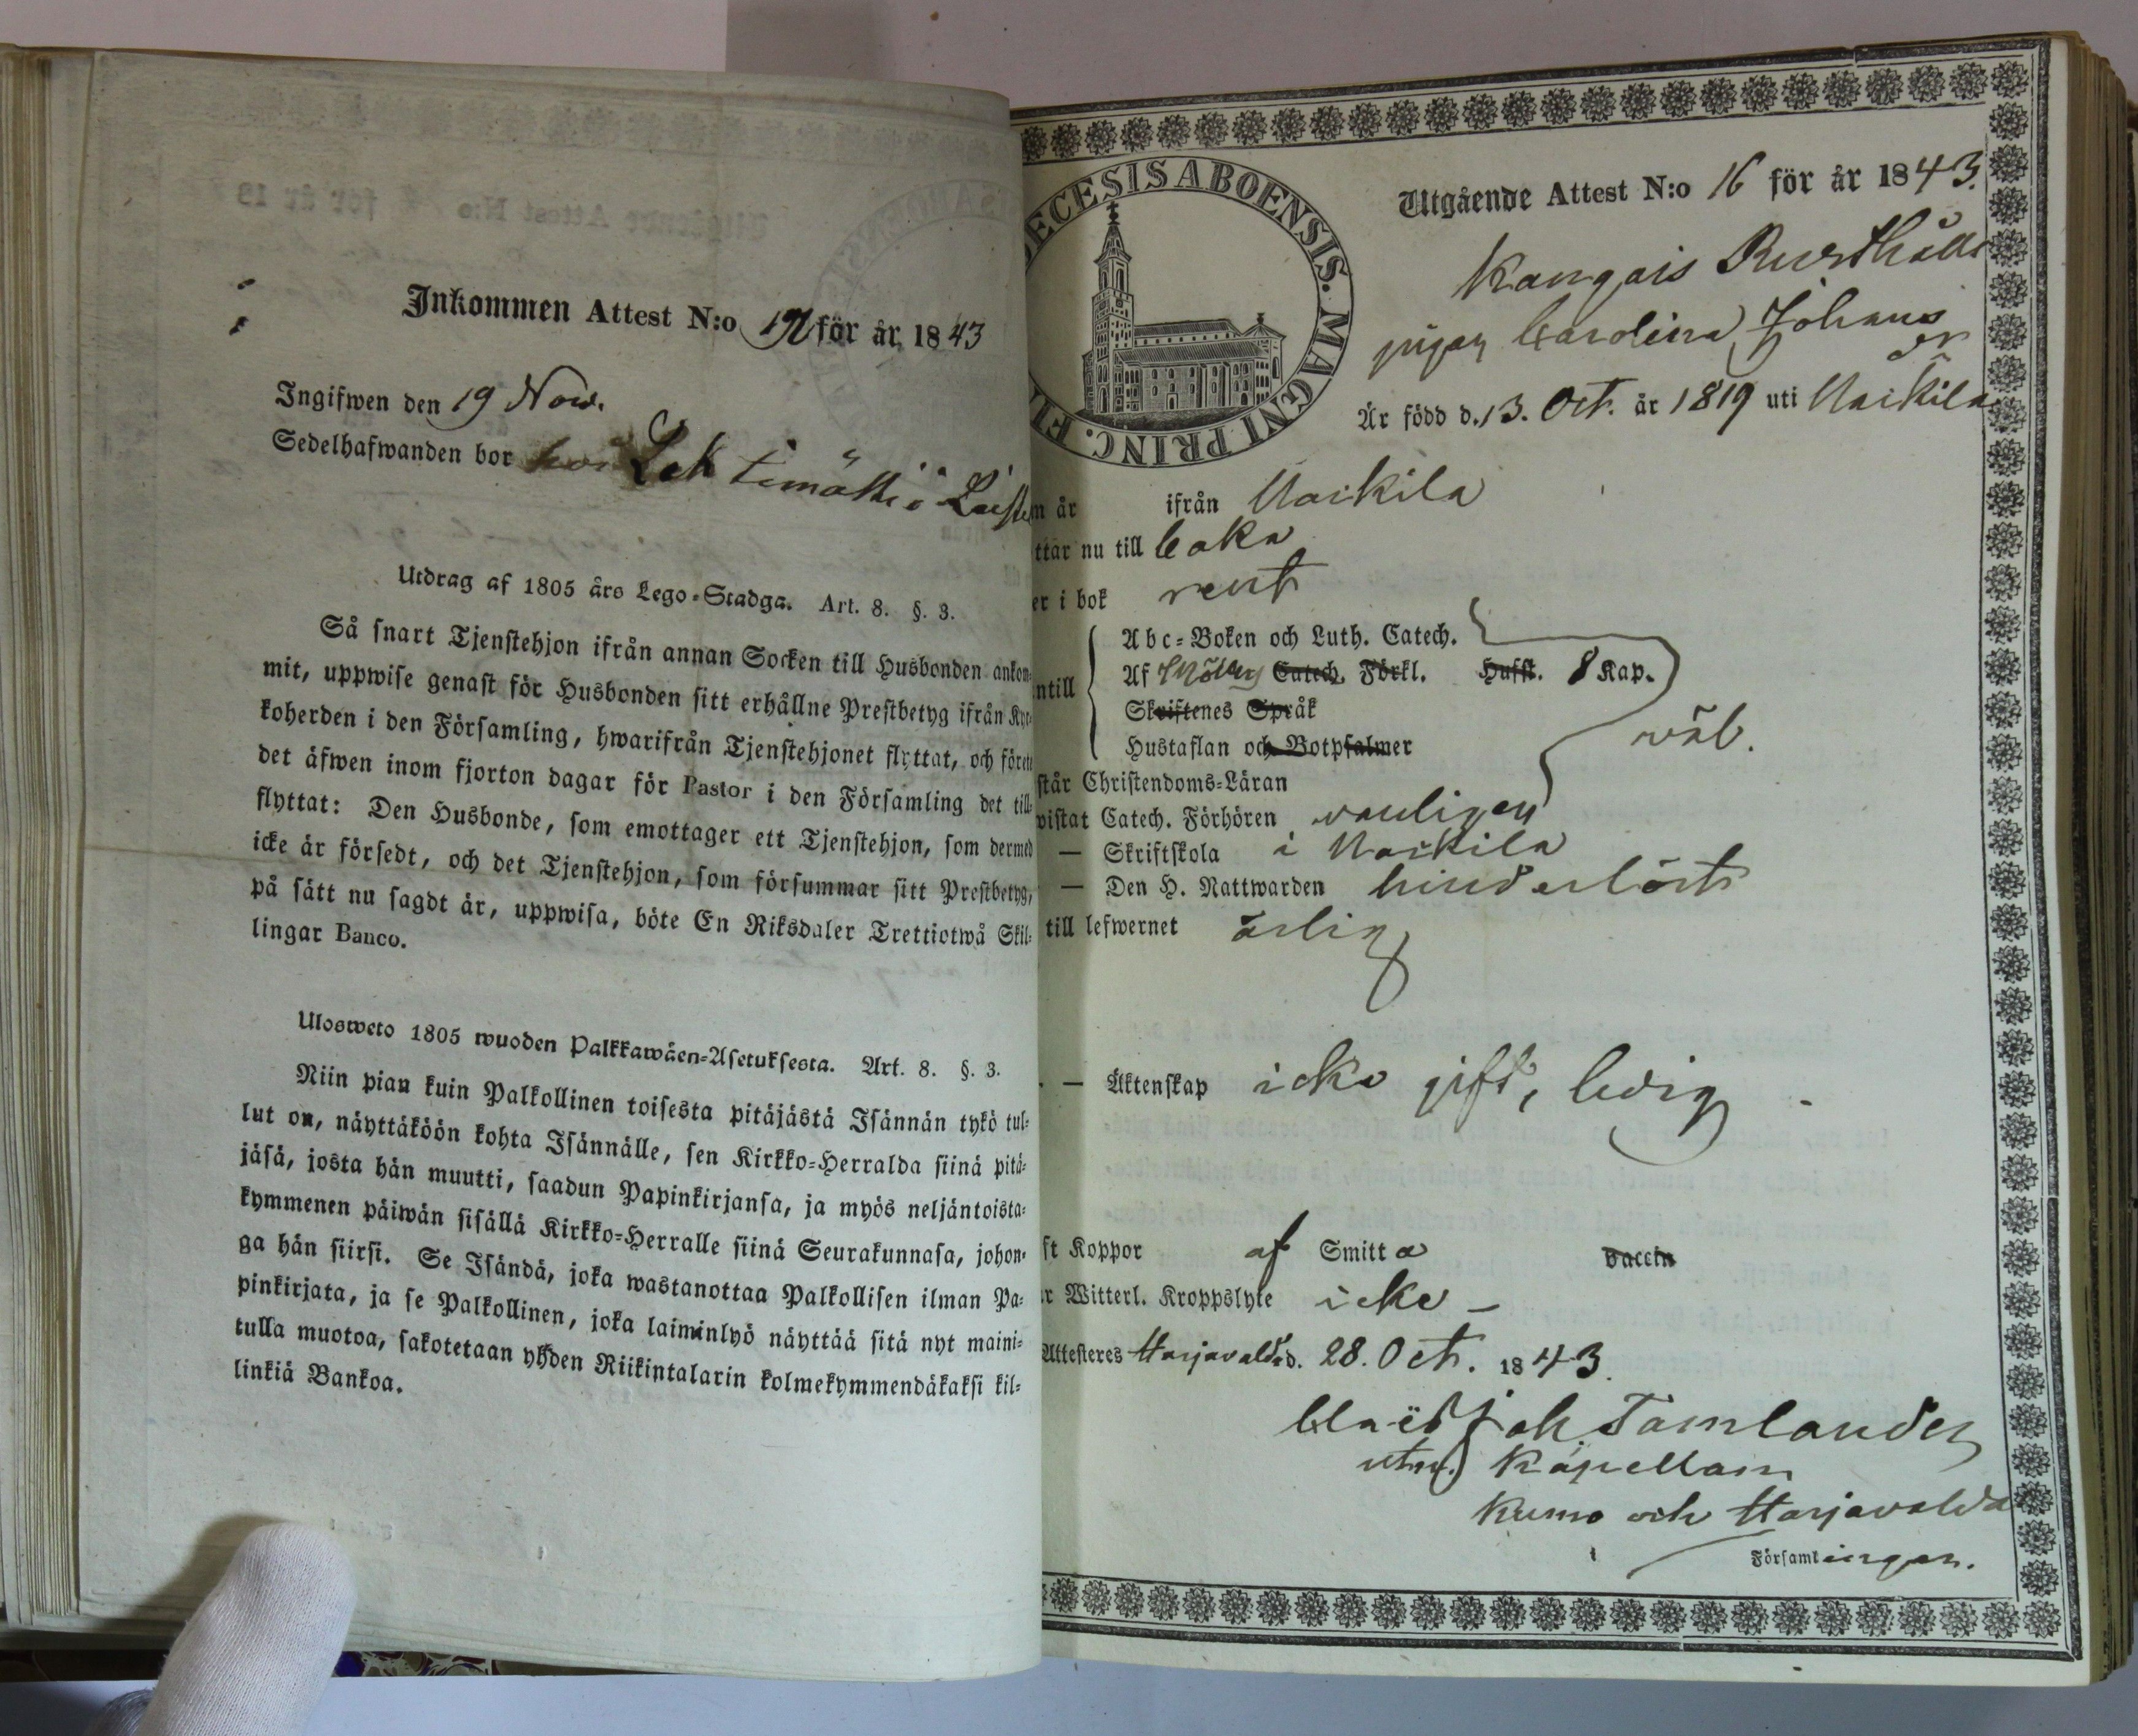 Inkommen Attest N:o för år 1843
Ingifwen den 19 Nov.
Sedelhafwanden bor hos
Utdrag af 1805 års Lego-Stadga. Art. 8. §. 3.
Så snart Tjenstehjon ifrån annan Socken till Husbonden ankom-
mit, uppwise genast för Husbonden sitt erhållne Prestbetyg ifrån Kyr-
koherden i den Församling, hwarifrån Tjenstehjonet flyttat, och förete
det äfwen inom fjorton dagar för Pastor i den Församling det till-
flyttat: Den Husbonde, som emottager ett Tjenstehjon, som dermed
icke är försedt, och det Tjenstehjon, som försummar sitt Prestbetyg,
på sätt nu sagdt är, uppwisa, böte En Riksdaler Trettiotwå Skil-
lingar Banco.
Ulosweto 1805 wuoden Palkkawäen-Asetuksesta. Art. 8. §. 3.
Niin pian kuin Palkollinen toisesta pitäjästä Isännän tykö tul-
lut on, näyttäköön kohta Isännälle, sen Kirkko-Herralda siinä pitä-
jäsä, josta hän muutti, saadun Papinkirjansa, ja myös neljäntoista-
kymmenen päiwän sisällä Kirkko-Herralle siinä Seurakunnasa, johon-
ga hän siirsi. Se Isändä, joka wastanottaa Palkollisen ilman Pa-
pinkirjata, ja se Palkollinen, joka laiminlyö näyttää sitä nyt maini-
tulla muotoa, sakotetaan yhden Riikintalarin kolmekymmendäkaksi kil-
linkiä Bankoa.
ECESIS ABOENSIS. MAGNI PRINC. FI
Utgående Attest N:o 16 för år 1843.
Kangais Rusthålls
pigan Carolina Johans
dr
Är född d. 13. Oct. år 1819 uti Nackila
n år ifrån Nackila
ttar nu till
er i bok rent
ntill
Abc-Boken och Luth. Catech.
Af Catech. Förkl. Hufst. 8 Kap.
Skriftenes Språk
Hustaflan och Botpsalmer
wäl.
står Christendoms-Läran
vistat Catech. Förhören vanligen
— Skriftskola i Nackila
— Den H. Nattwarden hinderlöst
till lefwernet ärlig
— Äktenskap icke gift, ledig
ft Koppor af Smitta vaccin
r Witterl. Kroppslyte icke —
Attesteres Harjavalda d. 28. Oct. 1843.
Joh Tamlander
Kapellan
Kumo och Harjavalda
Församlingar.